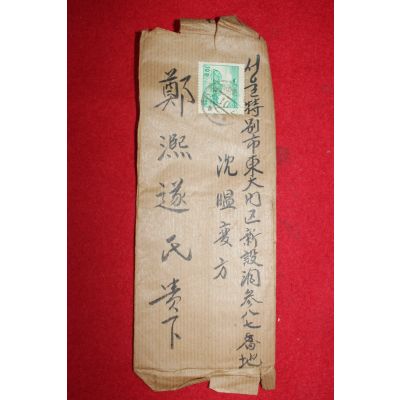 서울特別市東大門区新設洞参八七番地
沈
方
鄭熙遂氏貴下